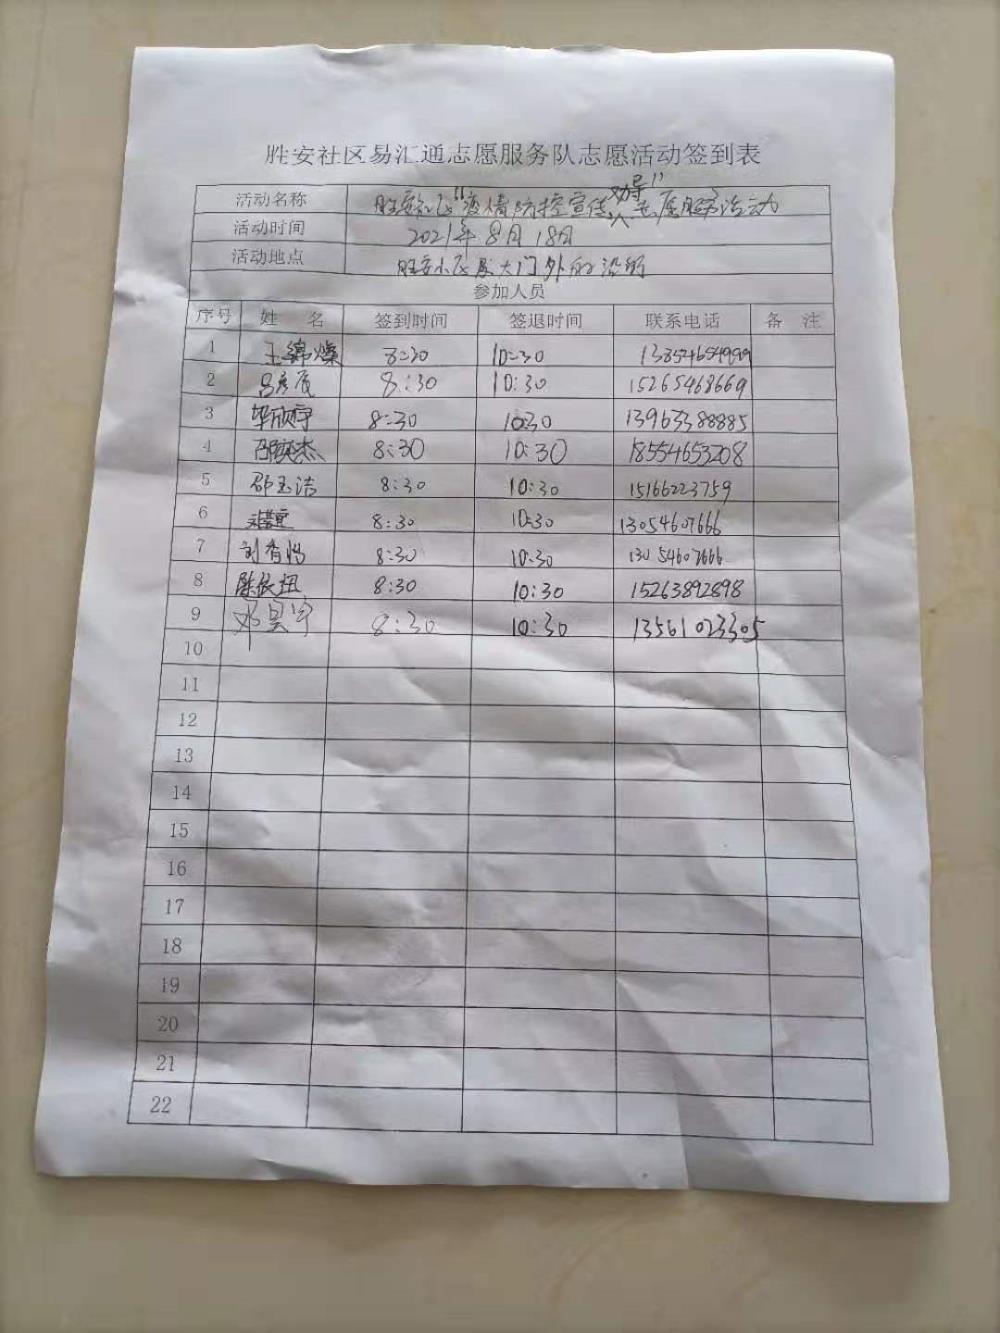 胜安社区易汇通志愿服务队志愿活动签到表
活动名称 胜安社区"疫情防控宣传劝导"志愿服务活动
活动时间 2021年8月18日
活动地点 胜安小区 大门外
参加人员
序号 姓 名 签到时间 签退时间 联系电话 备 注
1 王 8:30 10:30
2 吕彦辰 8:30 10:30 15265468669
3 毕欣宇 8:30 10:30 13963388885
4 邵英杰 8:30 10:30 18554653208
5 邵玉洁 8:30 10:30 15166223759
6 8:30 10:30 13054607666
7 刘香怡 8:30 10:30 13054607666
8 陈依 8:30 10:30 15263892898
9 邓昊宇 8:30 10:30 13561023305
10
11
12
13
14
15
16
17
18
19
20
21
22